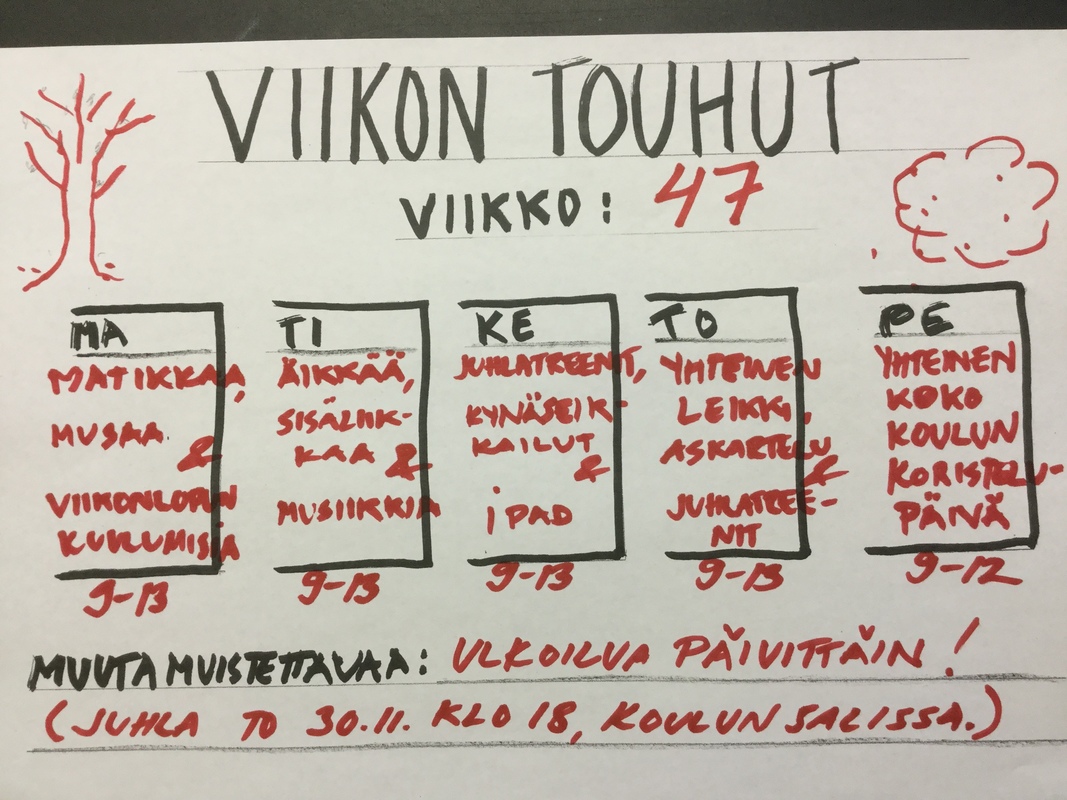 VIIKON TOUHUT
VIIKKO: 47
MA
MATIKKAA,
MUSAA
&
VIIKONLOPUN
KUULUMISIA
9-13
TI
ÄIKKÄÄ,
SISÄLIIK-
KAA &
MUSIIKKIA
9-13
KE
JUHLATREENIT,
KYNÄSEIK-
KAILUT
&
iPAD
9-13
TO
YHTEINEN
LEIKKI,
ASKARTELU
&
JUHLATREE-
NIT
9-13
PE
YHTEINEN
KOKO
KOULUN
KORISTELU-
PÄIVÄ
9-12
MUUTA MUISTETTAVAA: ULKOILUA PÄIVITTÄIN!
(JUHLA TO 30.11. KLO 18, KOULUN SALISSA.)